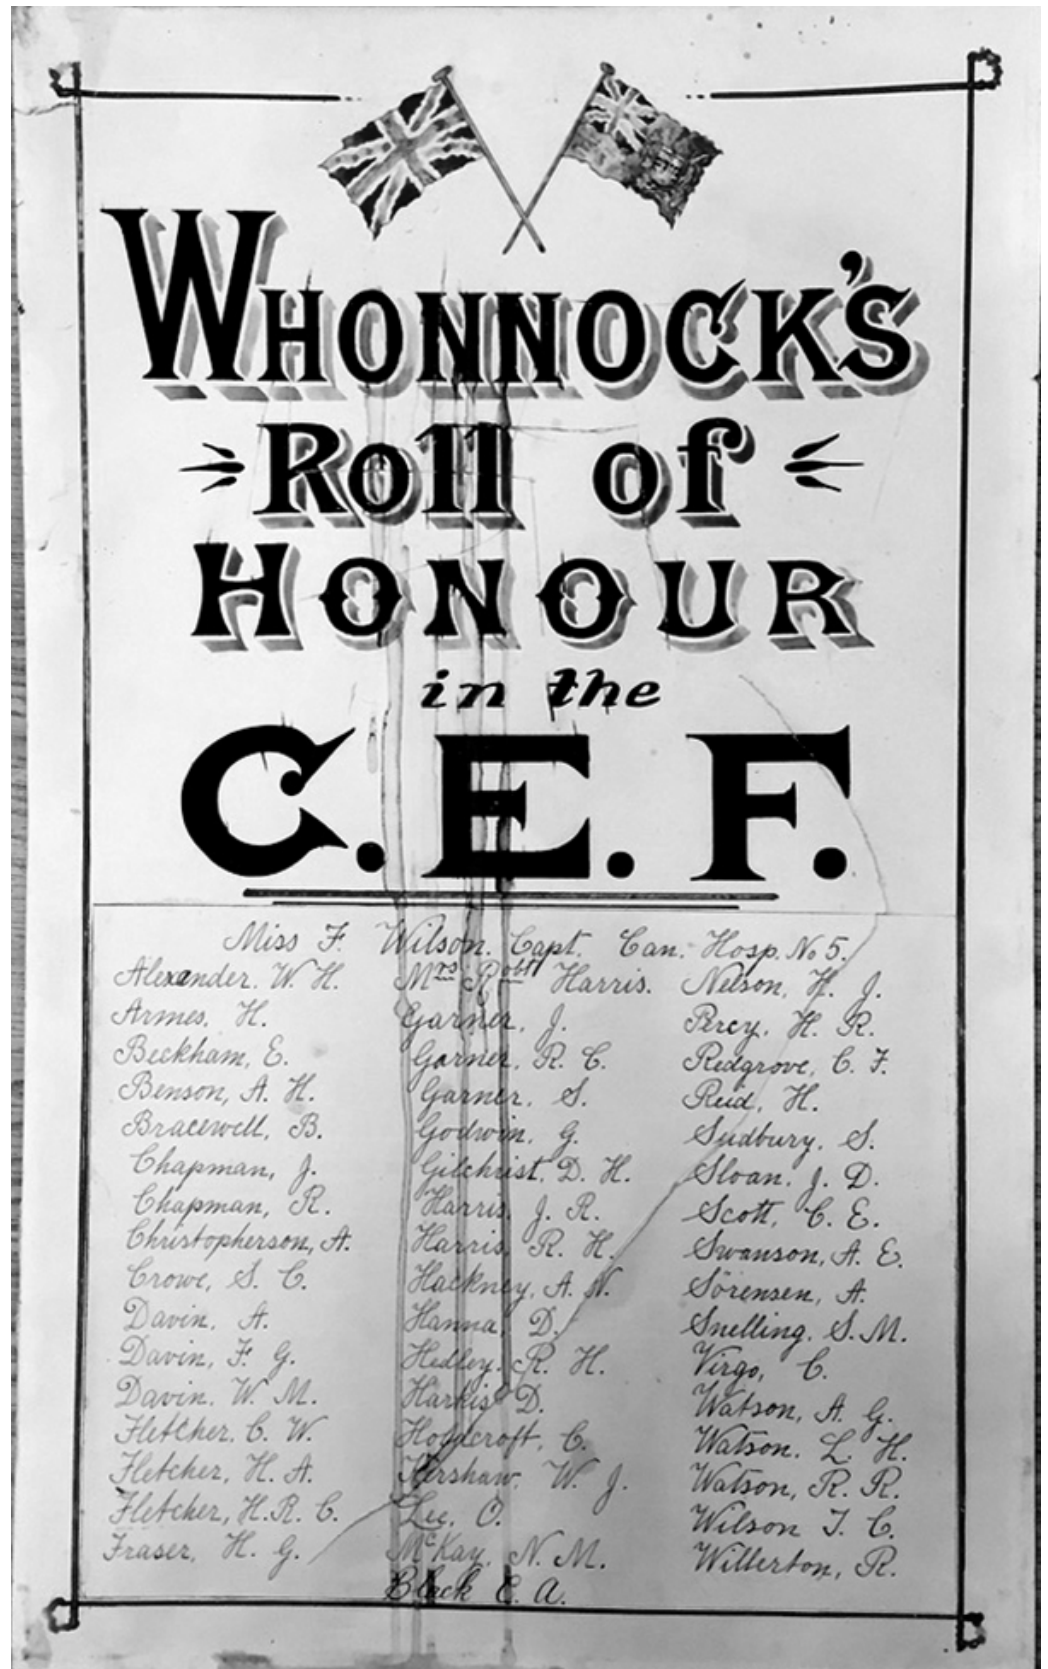 WHONNOCK'S
Roll of
HONOUR
in the
C.E.F.
Miss F. Wilson. Capt. Can. Hosp. No 5.
Alexander. W. H.
Armes. H.
Beckham, E.
Benson, A. H.
Bracewell, B.
Chapman, J.
Chapman, R.
Christopherson, A.
Crowe, S. C.
Davin. A.
Davin, F. G.
Davin. W. M.
Fletcher. C. W.
Fletcher, H. A.
Fletcher, H. R. C.
Fraser, H. G.
Mrs Robt Harris.
Garner, J.
Garner, R. C.
Garner, S.
Godwin, G.
Gilchrist, D. H.
Harris, J. R.
Harris, R. H.
Hackney, A. N.
Hanna, D.
Hedley. R. H.
Harkis D.
Holdcroft, C.
Kershaw, W. J.
Lee, O.
McKay, N. M.
Black C. A.
Nelson, H. J.
Percy, H. R.
Redgrove, C. F.
Reid, H.
Sudbury, S.
Sloan. J. D.
Scott, C. E.
Swanson, A. E.
Sörensen, A.
Snelling, S. M.
Virgo, C.
Watson, A. G.
Watson. L. H.
Watson, R. R.
Wilson T. C.
Willerton, R.